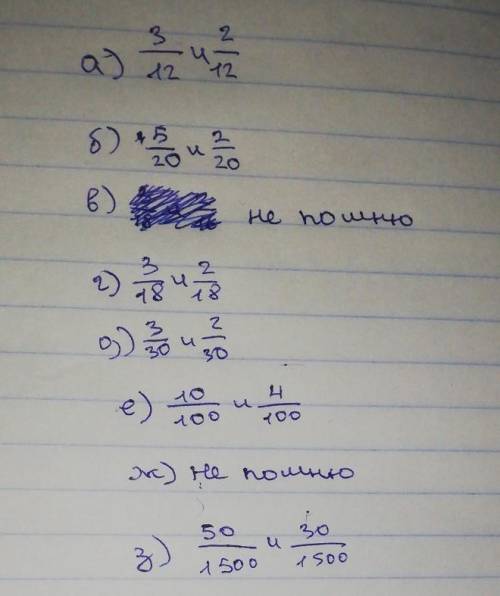 а) 3/12 и 2/12
б) 5/20 и 2/20
в) не помню
г) 3/18 и 2/18
д) 3/30 и 2/30
е) 10/100 и 4/100
ж) не помню
з) 50/1500 и 30/1500